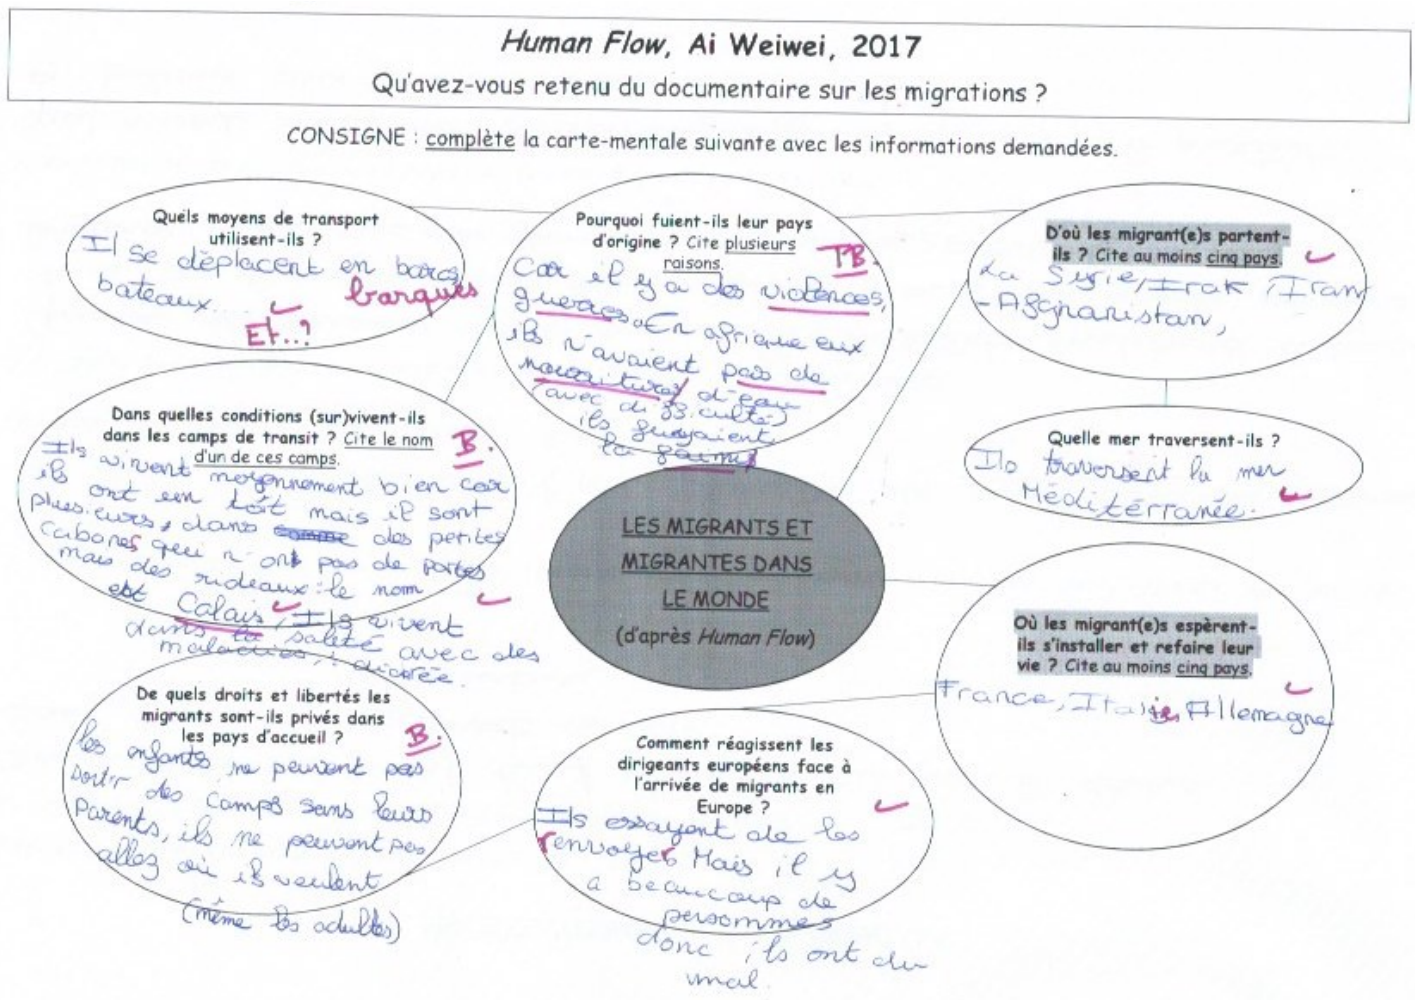 Human Flow, Ai Weiwei, 2017
Qu'avez-vous retenu du documentaire sur les migrations ?
CONSIGNE : complète la carte-mentale suivante avec les informations demandées.
Quels moyens de transport
utilisent-ils ?
Il se déplacent en barcs,
bateaux... barques
Et..?
Pourquoi fuient-ils leur pays
d'origine ? Cite plusieurs
raisons. TB.
Car il y a des violences,
guerres. En afrique eux
ils n'avaient pas de
nourritures/ d'eau
(avec difficulté)
ils fuyaient
la famine
D'où les migrant(e)s partent-
ils ? Cite au moins cinq pays.
La Syrie, Irak, Irant
-Afghanistan,
Dans quelles conditions (sur)vivent-ils
dans les camps de transit ? Cite le nom
d'un de ces camps. B.
Ils vivent moyennement bien car
ils ont un toît mais il sont
plusieurs, dans des petites
cabanes qui n'ont pas de portes
mais des rideaux : le nom
est Calais, Ils vivent
dans la saleté avec des
maladies,
Quelle mer traversent-ils ?
Ils traversent la mer
Méditérranée.
LES MIGRANTS ET
MIGRANTES DANS
LE MONDE
(d'après Human Flow)
Où les migrant(e)s espèrent-
ils s'installer et refaire leur
vie ? Cite au moins cinq pays.
France, Italie, Allemagne
De quels droits et libertés les
migrants sont-ils privés dans
les pays d'accueil ? B.
les enfants ne peuvent pas
sortir des camps sans leurs
parents, ils ne peuvent pas
allez où ils veulent
(même les adultes)
Comment réagissent les
dirigeants européens face à
l'arrivée de migrants en
Europe ?
Ils essayent de les
renvoyer Mais il y
a beaucoup de
personnes
donc ils ont du
mal.